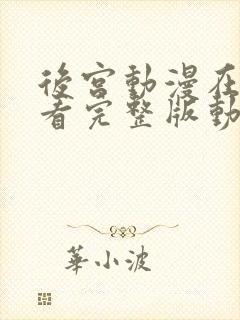 後宮動漫在
看完整版動
華小波